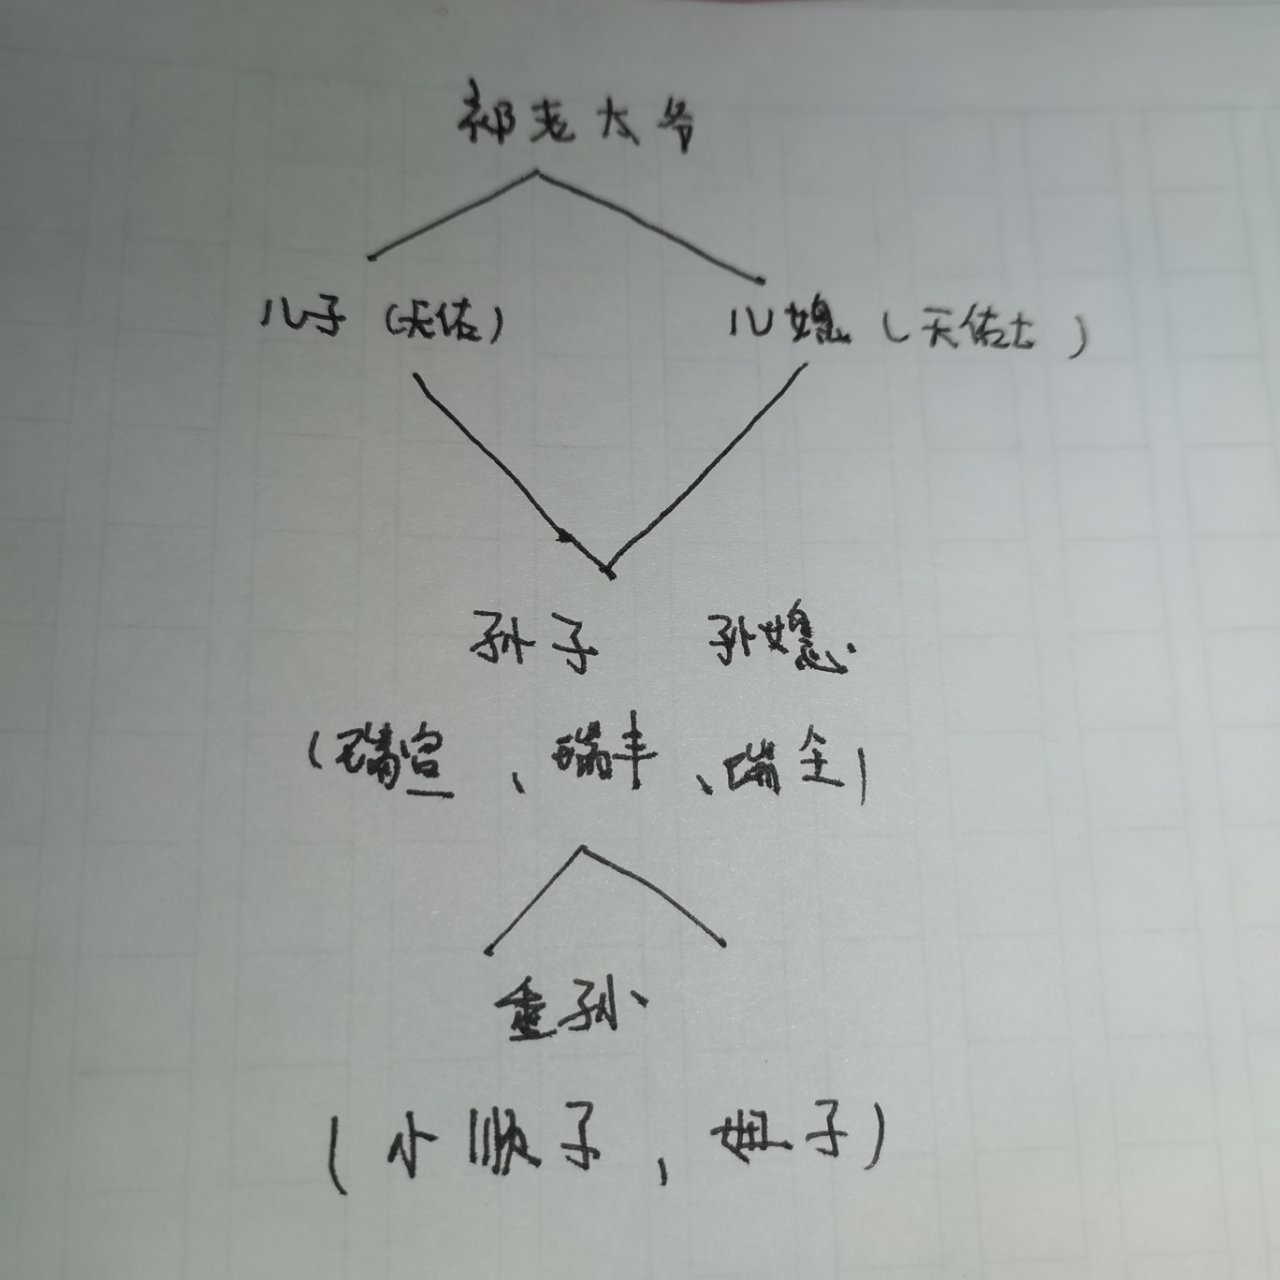 祁老太爷
儿子(天佑) 儿媳(天佑太)
孙子 孙媳
(瑞宣、瑞丰、瑞全)
重孙
(小顺子,妞子)